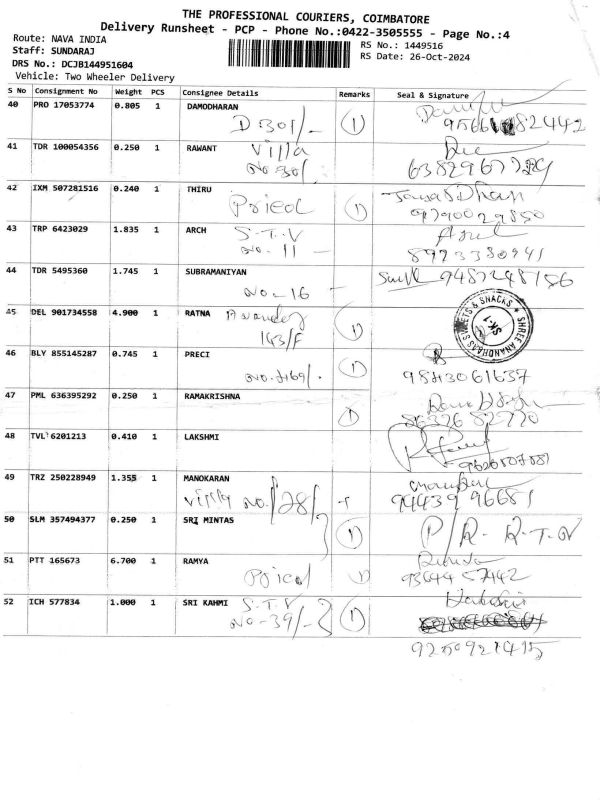 THE PROFESSIONAL COURIERS, COIMBATORE
Delivery Runsheet - PCP - Phone No.:0422-3505555 - Page No.:4
Route: NAVA INDIA
RS No.: 1449516
Staff: SUNDARAJ
RS Date: 26-Oct-2024
DRS No.: DCJB144951604
Vehicle: Two Wheeler Delivery
S No Consignment No Weight PCS Consignee Details Remarks Seal & Signature
40 PRO 17053774 0.805 1 DAMODHARAN
D 301/- 1
41 TDR 100054356 0.250 1 RAWANT Villa
No. 301.
42 IXM 507281516 0.240 1 THIRU
Pricol 1 9790029850
43 TRP 6423029 1.835 1 ARCH S.T.V
No. 11 - 8973380941
44 TDR 5495360 1.745 1 SUBRAMANIYAN 9487248156
No - 16 -
45 DEL 901734558 4.900 1 RATNA
143/F 1
SHREE ANANDHAAS SWEETS & SNACKS
46 BLY 855145287 0.745 1 PRECI
1
47 PML 636395292 0.250 1 RAMAKRISHNA
1
48 TVL 6201213 0.410 1 LAKSHMI
49 TRZ 250228949 1.355 1 MANOKARAN
No. 128/- 94439 96681
50 SLM 357494377 0.250 1 SRI MINTAS
1 P/R. R.T.N
51 PTT 165673 6.700 1 RAMYA
Pricol 1 93644 57442
52 ICH 577834 1.000 1 SRI KAHMI S.T.V
No - 39/- 1